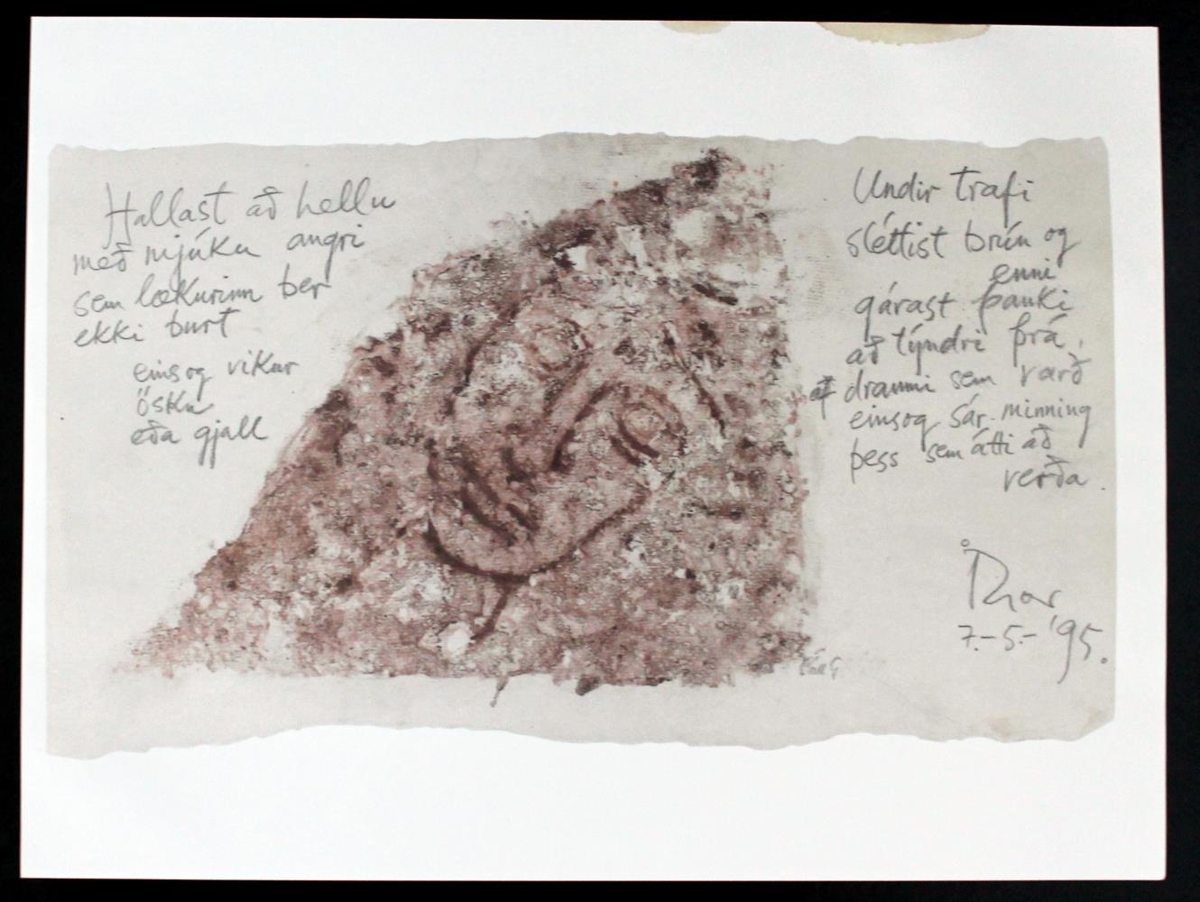 Hallast að hellu
með mjúku angri
sem lækurinn ber
ekki burt
einsog vikur
ösku
eða gjall
Undir trafi
sléttist brún og
enni
gárast þanki
að týndri þrá,
af draumi sem varð
einsog sár minning
þess sem átti að
verða.
Thor
7.-5.-'95.